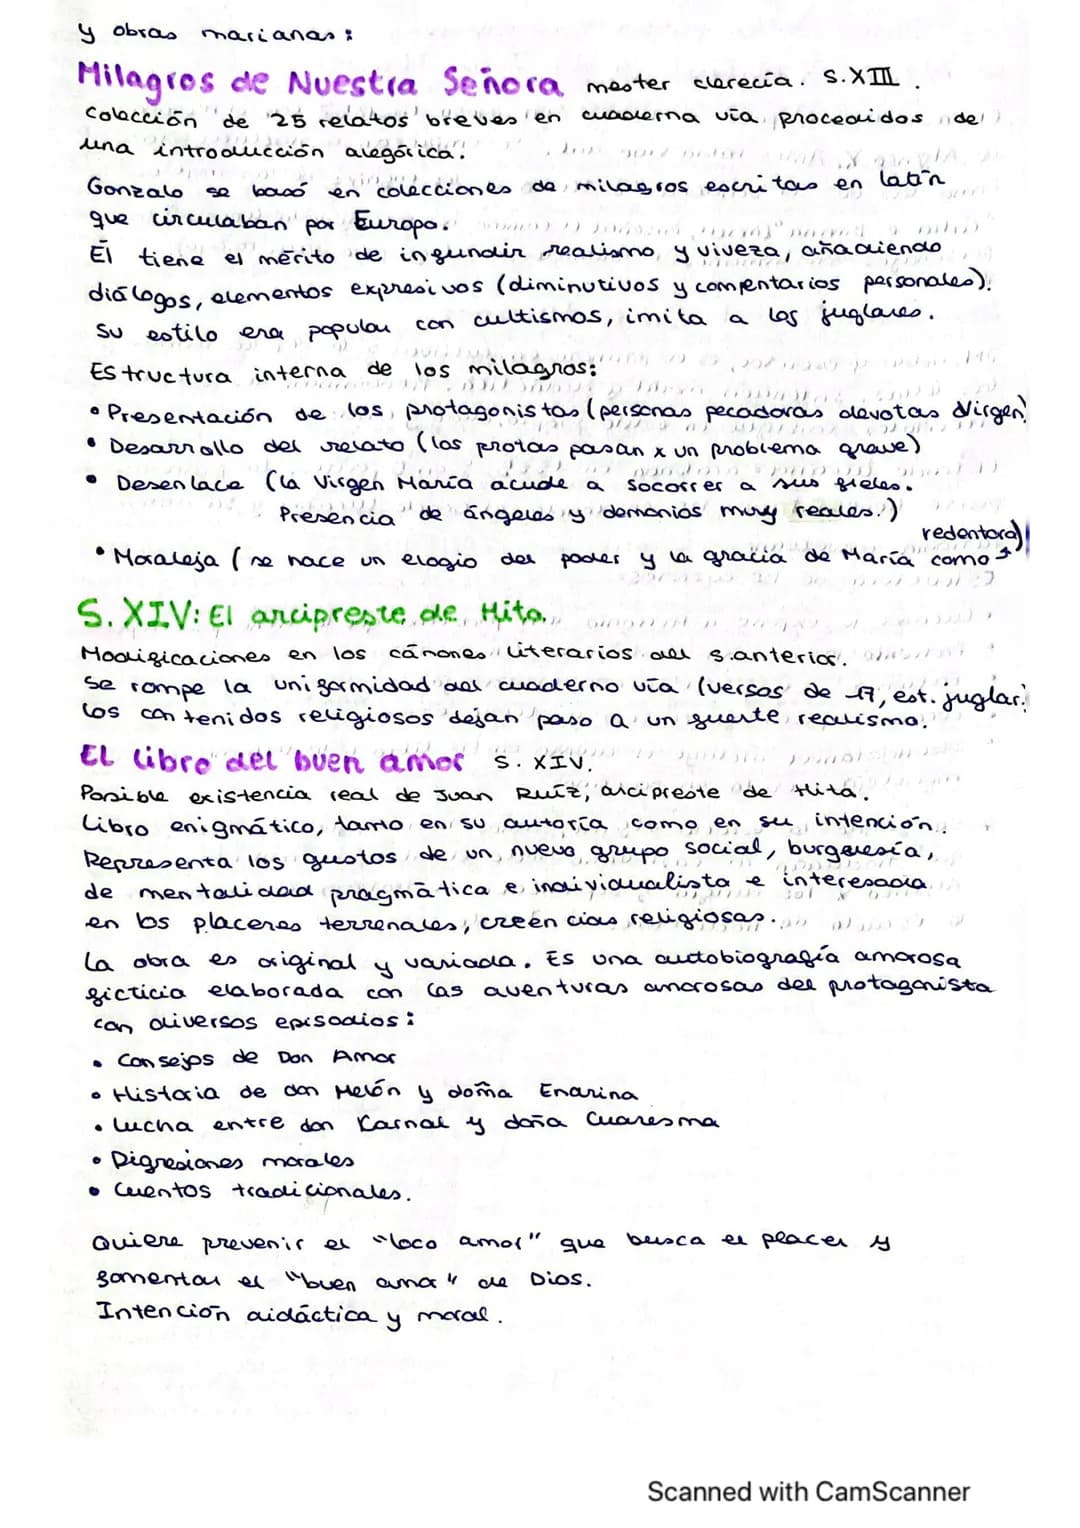 y obras marianas:
Milagros de Nuestra Señora mester clerecía. S.XIII.
Colección de 25 relatos breves en cuaderna vía procedidos de
una introducción alegórica.
Gonzalo se basó en colecciones de milagros escritas en latín
que circulaban por Europa.
Él tiene el mérito de infundir realismo y viveza, añadiendo
diálogos, elementos expresivos (diminutivos y comentarios personales).
Su estilo era popular con cultismos, imita a los juglares.
Estructura interna de los milagros:
• Presentación de los protagonistas (personas pecadoras devotas Virgen)
• Desarrollo del relato (los protas pasan x un problema grave)
• Desenlace (la Virgen María acude a socorrer a sus fieles.
Presencia de ángeles y demonios muy reales.)
redentora)
• Moraleja (se hace un elogio del poder y la gracia de María como
S. XIV: El arcipreste de Hita.
Modificaciones en los cánones literarios del s.anterior.
Se rompe la uniformidad del cuaderno vía (versos de 17, est. juglar.
los contenidos religiosos dejan paso a un fuerte realismo.
El libro del buen amor S. XIV.
Posible existencia real de Juan Ruíz, arcipreste de Hita.
Libro enigmático, tanto en su autoría como en su intención.
Representa los gustos de un nuevo grupo social, burguesía,
de mentalidad pragmática e individualista e interesada
en los placeres terrenales, creencias religiosas.
La obra es original y variada. Es una autobiografía amorosa
ficticia elaborada con las aventuras amorosas del protagonista
con diversos episodios:
• Consejos de Don Amor
• Historia de don Melón y doña Enarina
• Lucha entre don Karnal y doña Cuaresma
• Digresiones morales
• Cuentos tradicionales.
Quiere prevenir el "loco amor" que busca el placer y
fomentar el "buen amor" de Dios.
Intención didáctica y moral.
Scanned with CamScanner